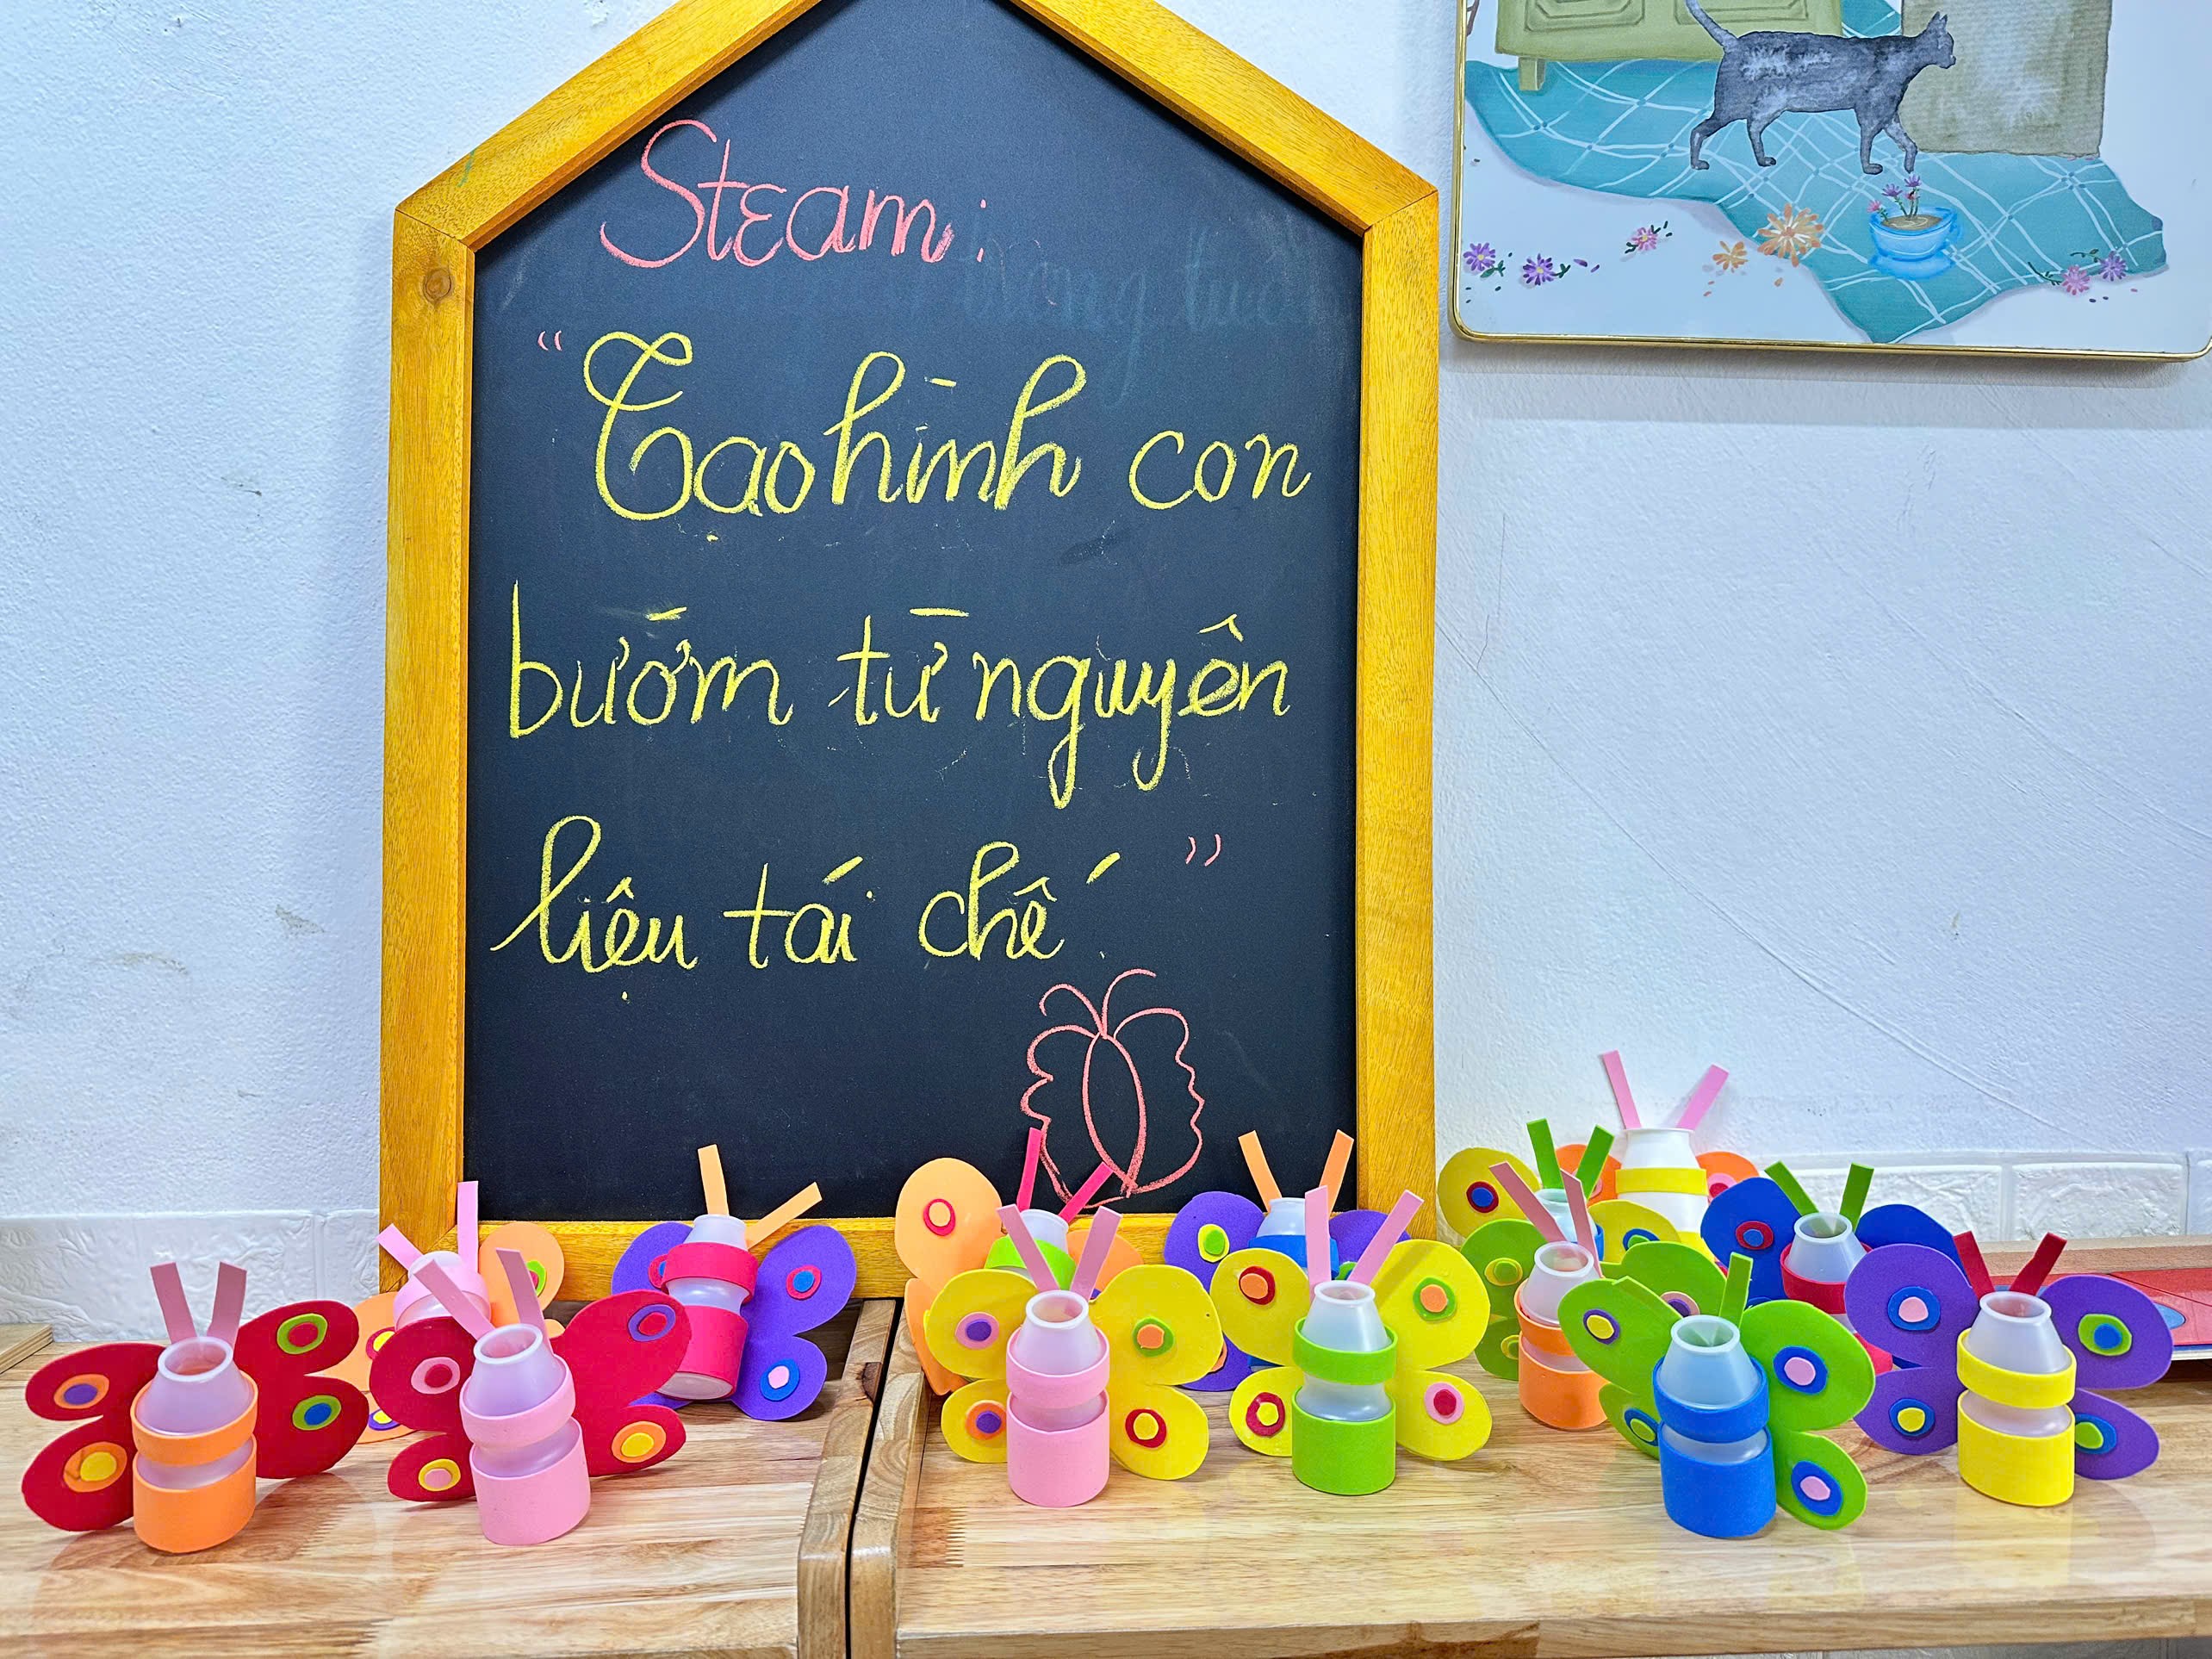 Steam:
"Tạo hình con
bướm từ nguyên
liệu tái chế"